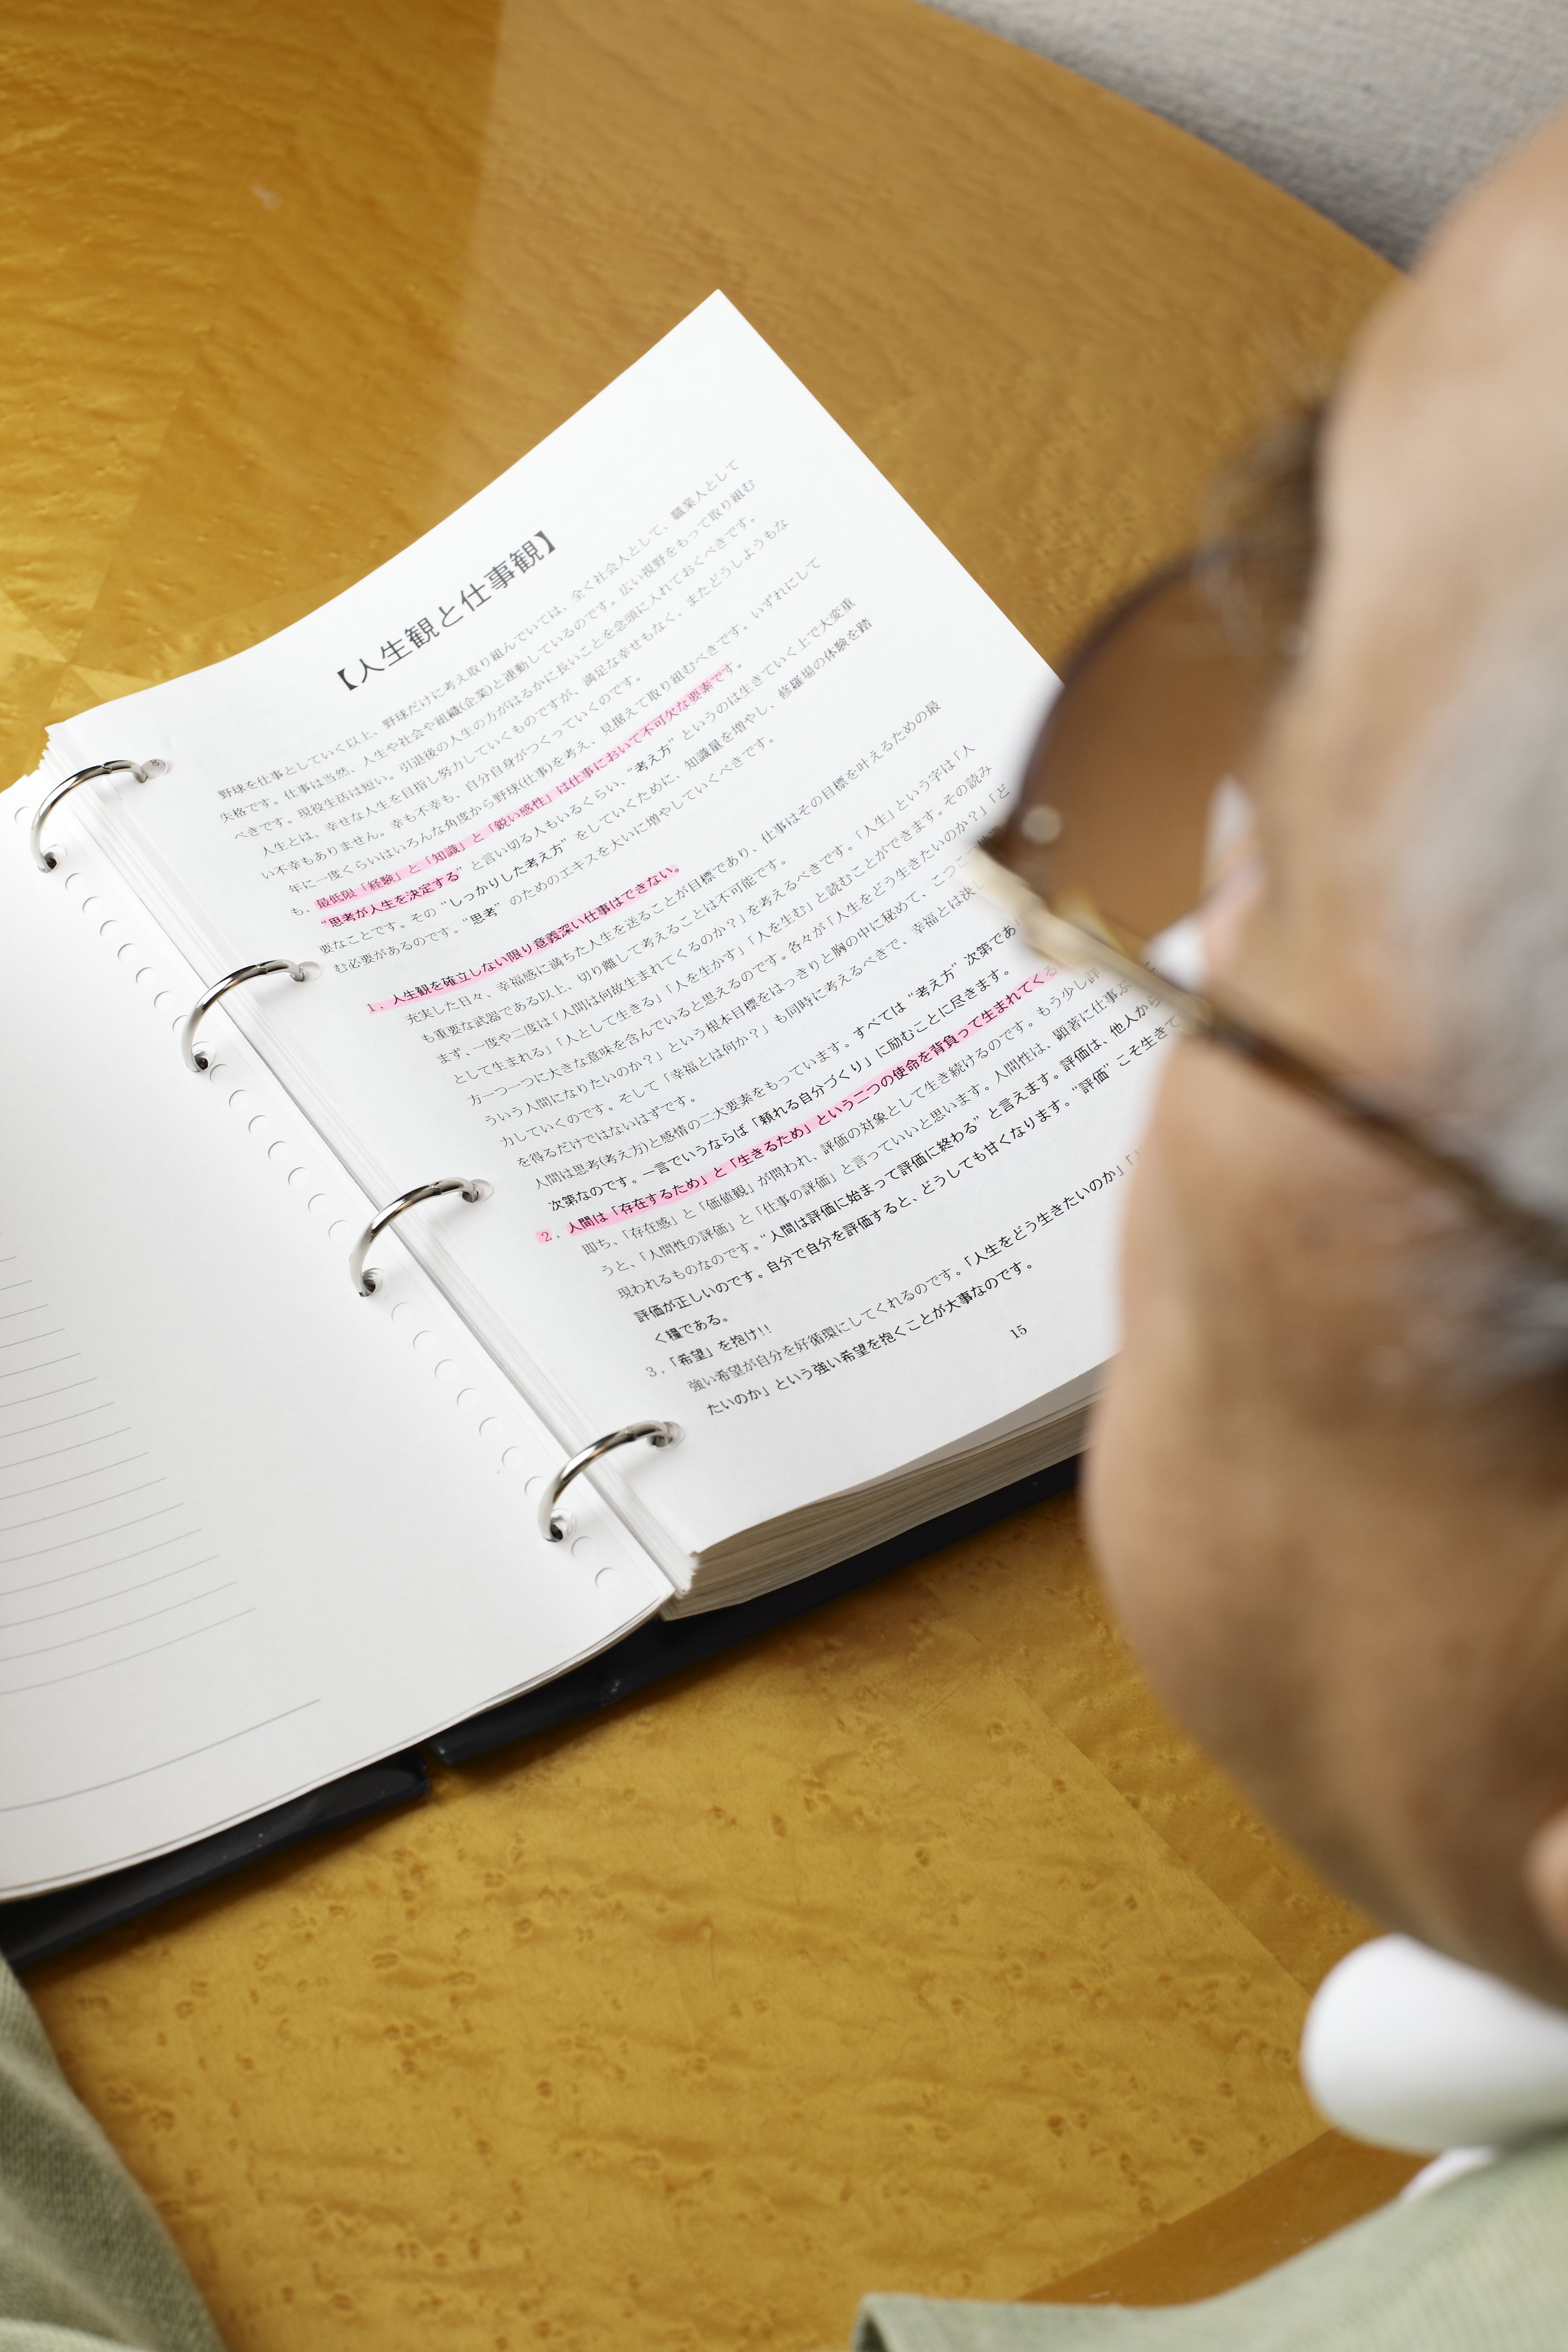 【人生観と仕事観】
野球を仕事としていく以上、野球だけに考え取り組んでいては、全く社会人として、職業人として
失格です。仕事は当然、人生や社会や組織(企業)と連動しているのです。広い視野をもって取り組む
べきです。現役生活は短い。引退後の人生の方がはるかに長いことを念頭に入れておくべきです。
人生とは、幸せな人生を目指し努力していくものですが、満足な幸せもなく、またどうしようもな
い不幸もありません。幸も不幸も、自分自身がつくっていくのです。
年に一度くらいはいろんな角度から野球(仕事)を考え、見据えて取り組むべきです。いずれにして
も、最低限「経験」と「知識」と「鋭い感性」は仕事において不可欠な要素です。
“思考が人生を決定する”と言い切る人もいるくらい、“考え方”というのは生きていく上で大変重
要なことです。その“しっかりした考え方”をしていくために、知識量を増やし、修羅場の体験を踏
む必要があるのです。“思考”のためのエキスを大いに増やしていくべきです。
1. 人生観を確立しない限り意義深い仕事はできない。
充実した日々、幸福感に満ちた人生を送ることが目標であり、仕事はその目標を叶えるための最
も重要な武器である以上、切り離して考えることは不可能です。
まず、一度や二度は「人間は何故生まれてくるのか？」を考えるべきです。「人生」という字は「人
として生まれる」「人として生きる」「人を生かす」「人を生む」と読むことができます。その読み
方一つ一つに大きな意味を含んでいると思えるのです。各々が「人生をどう生きたいのか？」「ど
ういう人間になりたいのか？」という根本目標をはっきりと胸の中に秘めて、こつこつ
力していくのです。そして「幸福とは何か？」も同時に考えるべきで、幸福とは決し
を得るだけではないはずです。
人間は思考(考え方)と感情の二大要素をもっています。すべては“考え方”次第であ
次第なのです。一言でいうならば「頼れる自分づくり」に励むことに尽きます。
2. 人間は「存在するため」と「生きるため」という二つの使命を背負って生まれてくる
即ち、「存在感」と「価値観」が問われ、評価の対象として生き続けるのです。もう少し評
うと、「人間性の評価」と「仕事の評価」と言っていいと思います。人間性は、顕著に仕事ぶ
現われるものなのです。“人間は評価に始まって評価に終わる”と言えます。評価は、他人から
評価が正しいのです。自分で自分を評価すると、どうしても甘くなります。“評価”こそ生きて
く糧である。
3.「希望」を抱け!!
強い希望が自分を好循環にしてくれるのです。「人生をどう生きたいのか」「
たいのか」という強い希望を抱くことが大事なのです。
15